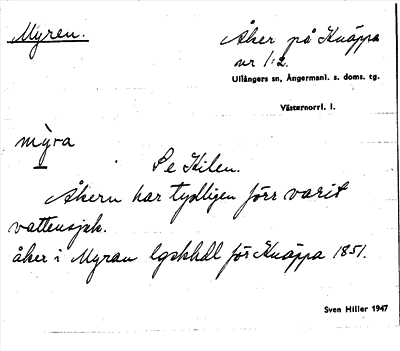 Myren.
Åker på Knäppa
nr 1:2.
Ullångers sn, Ångermanl. s. doms. tg.
Västernorrl. l.
mỳra
Se Kilen.
Åkern har tydligen förr varit
vattensjuk.
åker i Myran lgskhdl för Knäppa 1851.
Sven Hiller 1947